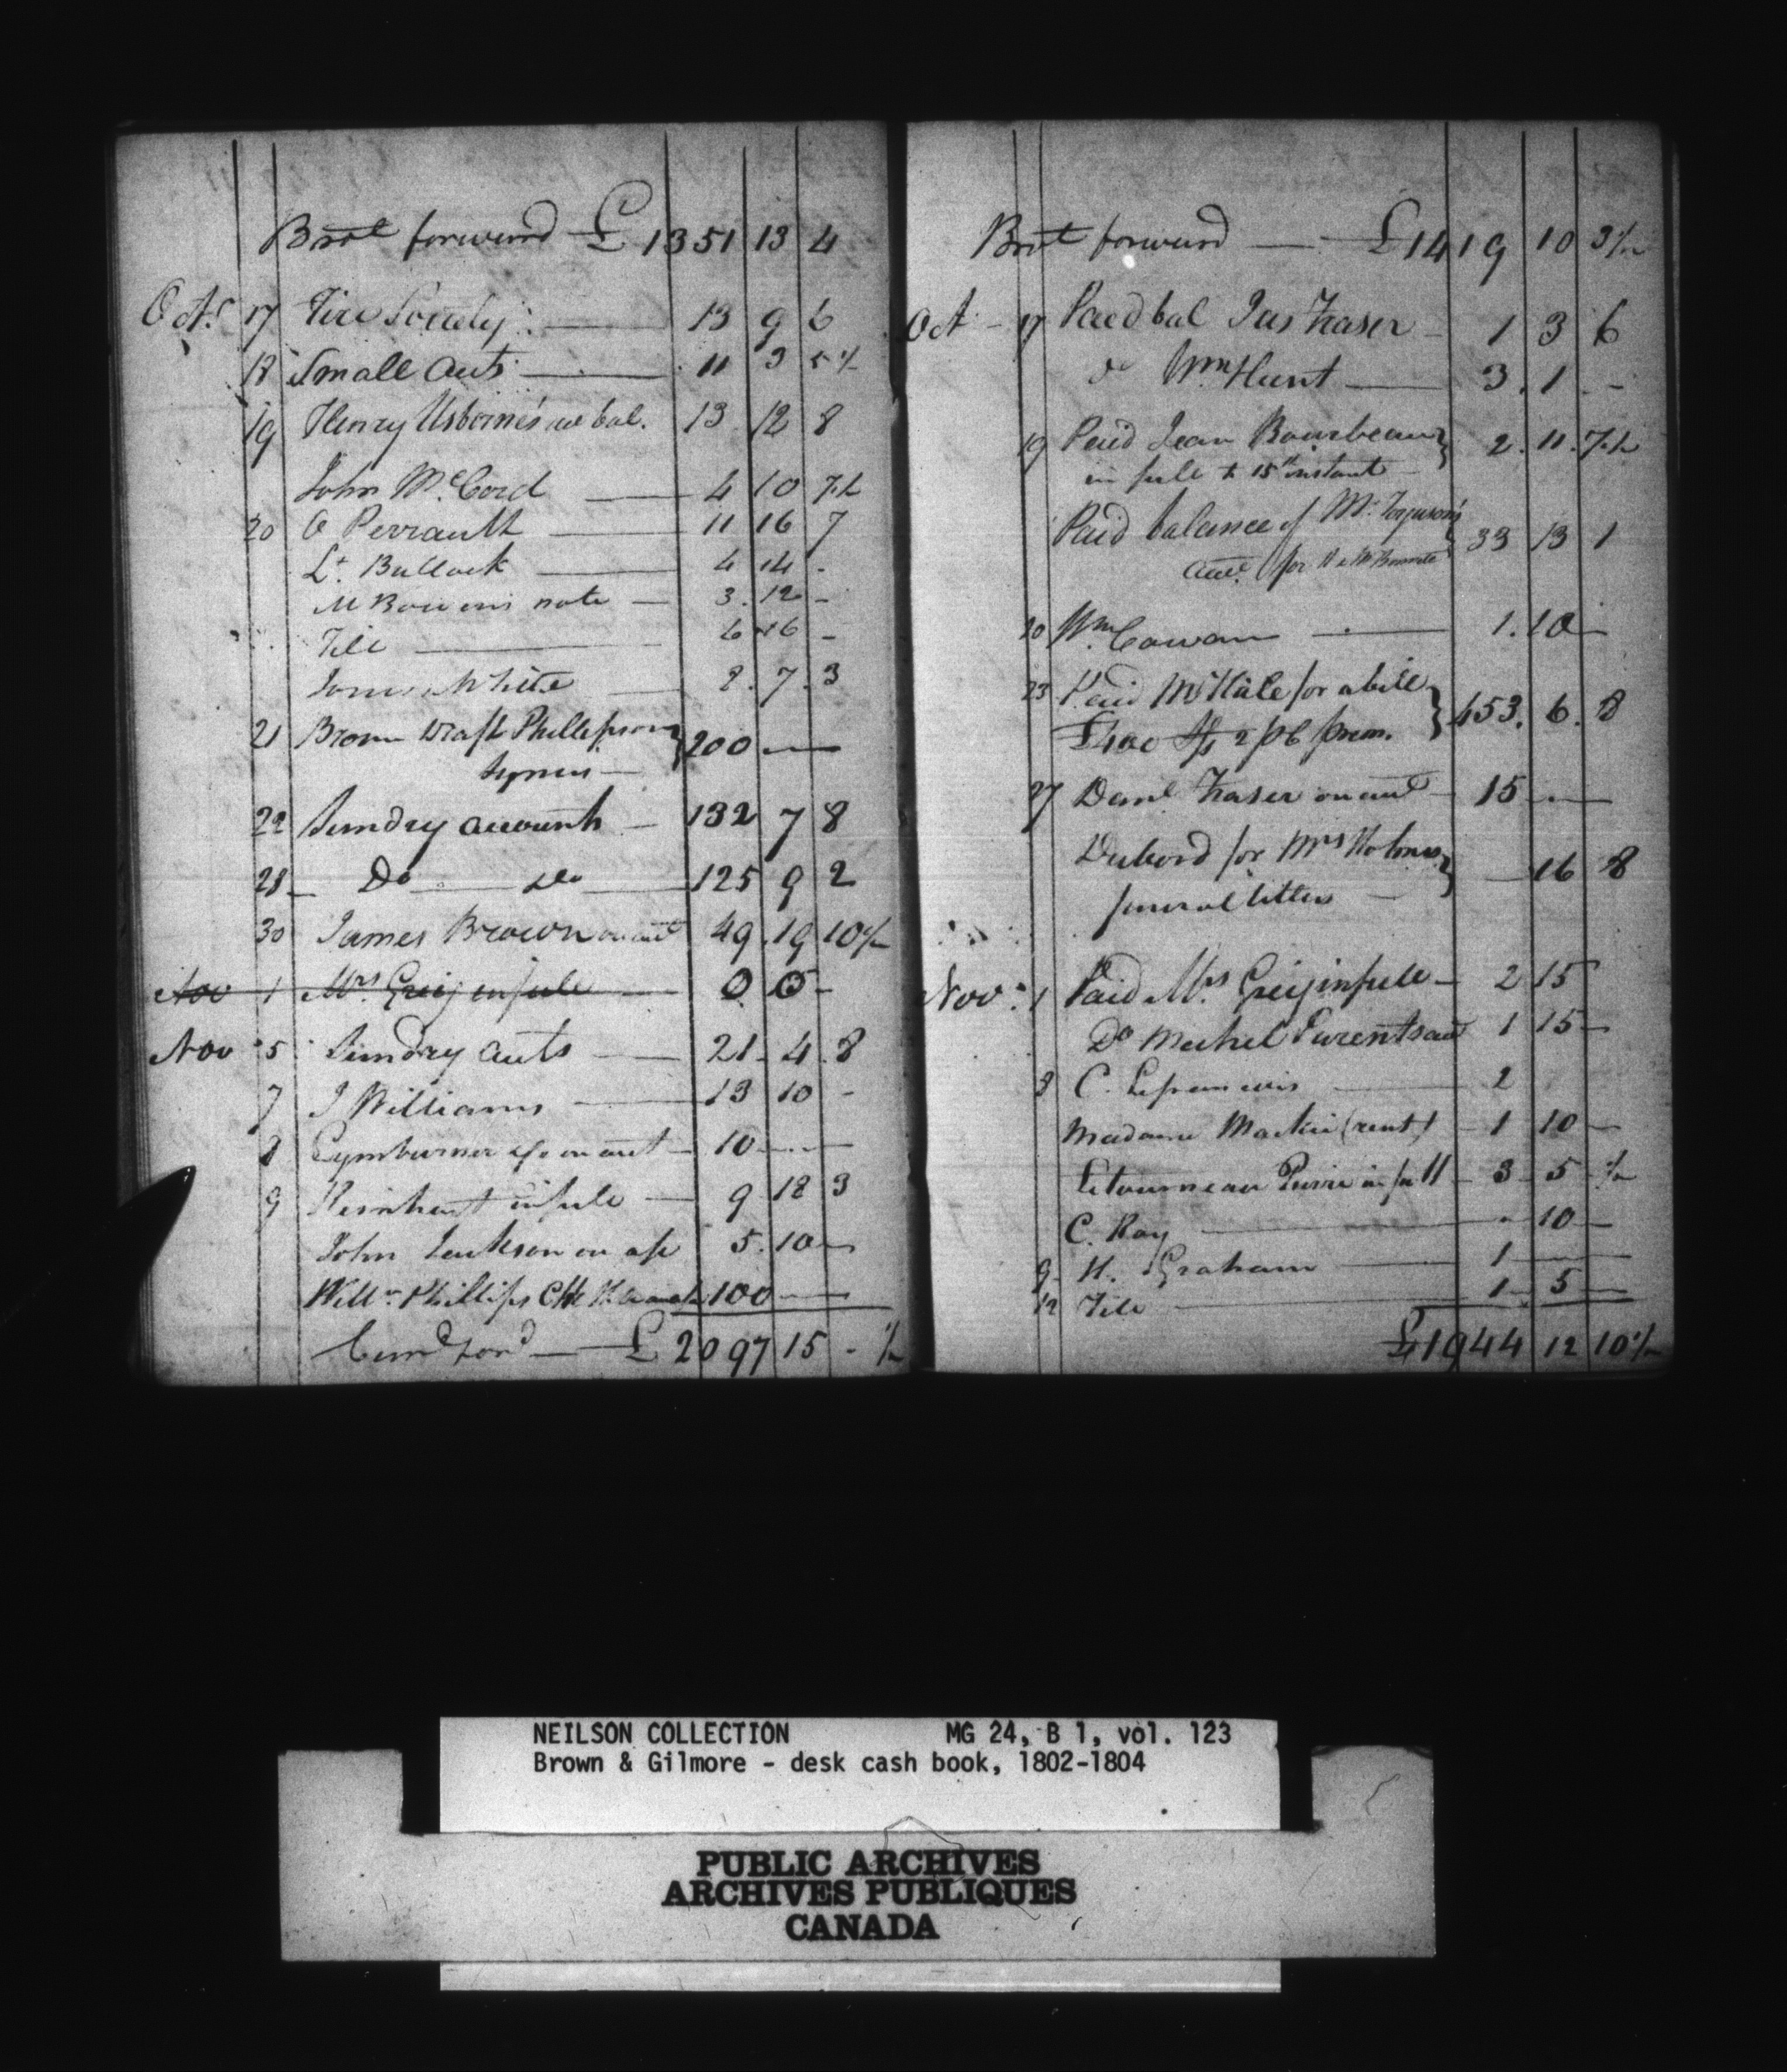 Brot forward £ 1351 13 4
Octr 17 Fire Society 13 9 6
18 Small Acts 11 3 5½
19 Henry Usborne's bal. 13 12 8
John McCord 4 10 7½
20 O Perrault 11 16 7
Lt. Bullock 4 14 -
M Bowens note 3. 12 -
Tile 6 16 -
White 8. 7. 3
21 Brown draft Phillipson } 200 —
22 Sundry accounts 132 7 8
28 Do Do 125 9 2
30 James Brown on act 49 19 10½
Nov 1 Mrs Greig in full 0 0 -
Nov 5 Sundry Acts 21 4 8
7 J Williams 13 10 -
8 Lymburner & Co on act 10 - -
9 Reinhart in full 9 18 3
John Jackson on a/c 5. 10 -
Willm Phillips 100 —
Card Ford £ 2097 15 - ½
Brot forward £1419 10 3½
Oct 17 Paid bal Jas Fraser 1 3 6
do Wm Hunt 3. 1 -
19 Paid Jean Bourbeau } 2. 11. 7½
in full to 15th instant
Paid balance of Mr. Ferguson's } 33 13 1
acct. for H & W
20 Wm. Cowan 1. 10 -
23 Paid Mr Hale for a bill } 453. 6. 8
£400 Stg 2 p% prem.
27 Danl Fraser on act 15 - -
Dubord for Mrs Holmes } 16 8
funeral letters
Nov. 1 Paid Mrs Greig in full 2 15
Do Michel Parents act 1 15 -
8 C. Lefrancois 2
Madame Mackie (rent) 1 10 -
Letourneau in full 3 5 ½
C. Ray 10 -
9 H. Graham 1 -
12 Tile 1 5 -
£1944 12 10½
NEILSON COLLECTION MG 24, B 1, vol. 123
Brown & Gilmore - desk cash book, 1802-1804
PUBLIC ARCHIVES
ARCHIVES PUBLIQUES
CANADA